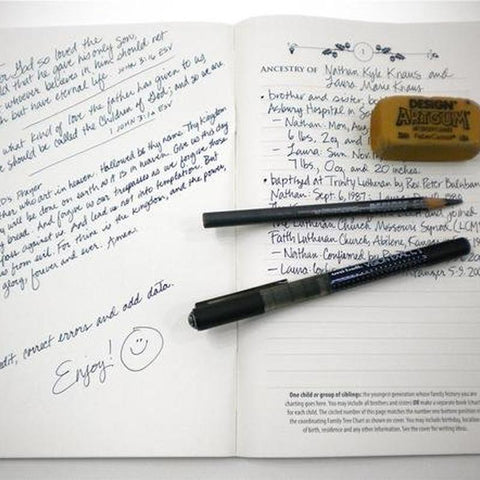 God so loved the
that he gave his only Son,
whoever believes in him should not
but have eternal life
JOHN 3:16 ESV
what kind of love the father has given to us
should be called the children of God; and so we are
1 JOHN 3:1a ESV
Prayer
who art in heaven. Hallowed be thy name. Thy Kingdom
will be done on earth as it is in heaven. Give us this day
bread. And forgive us our trespasses as we forgive those
against us. And lead us not into temptation. But
us from evil. For thine is the kingdom, and the power
glory, forever and ever. Amen.
edit, correct errors and add data.
Enjoy!
1
ANCESTRY OF Nathan Kyle Knaus and
Laura Marie Knaus
• brother and sister, b
Asbury Hospital in S
– Nathan: Mon, Au
6 lbs, 2 oz
– Laura: Sun, No
7 lbs, 0 oz and 20 inches.
• baptized at Trinity Lutheran by Rev. Peter
Nathan: Sept. 6, 1987;
and joined
Lutheran Church Missouri Synod (LCM
Faith Lutheran Church, Abilene, Kansas
– Nathan: Confirmed by
– Laura:
DESIGN
ARTGUM
Faber Castell
One child or group of siblings: the youngest generation whose family history you are
charting goes here. You may include all brothers and sisters OR make a separate book (chart)
for each child. The circled number of this page matches the number into bottom position of
the coordinating Family Tree Chart as shown on cover. You may include birthday, location
of birth, residence and any other information. See the cover for writing ideas.